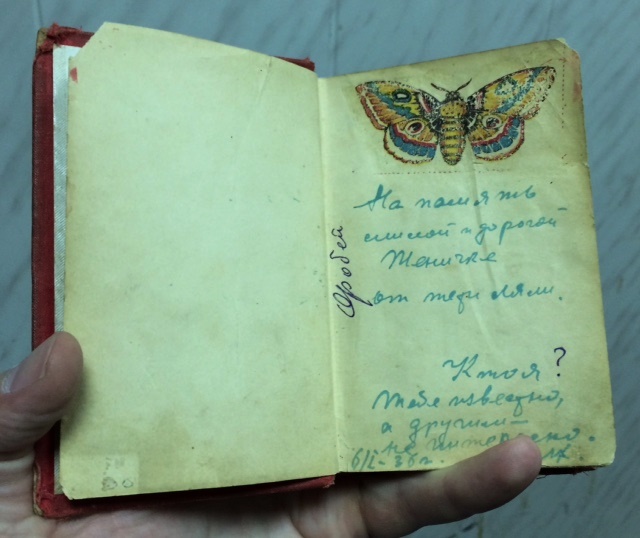 На память
милой и дорогой
Женичке
от тети Ляли.
Кто я?
Тебе известно,
а другим —
не интересно.
6/I - 36 г.